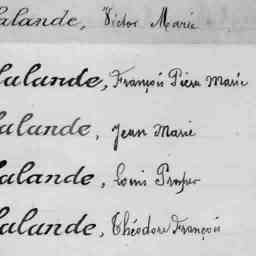 Lalande, Victor Marie
Lalande, François Pierre Marie
Lalande, Jean Marie
Lalande, Louis Prosper
Lalande, Théodore François